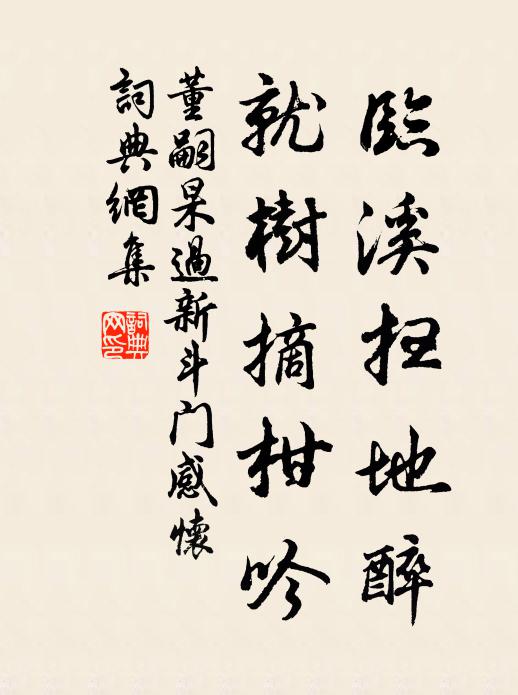 臨溪扫地醉
就樹摘柑吟
董嗣杲過新斗门感懷
詞典網集
詞典
网印